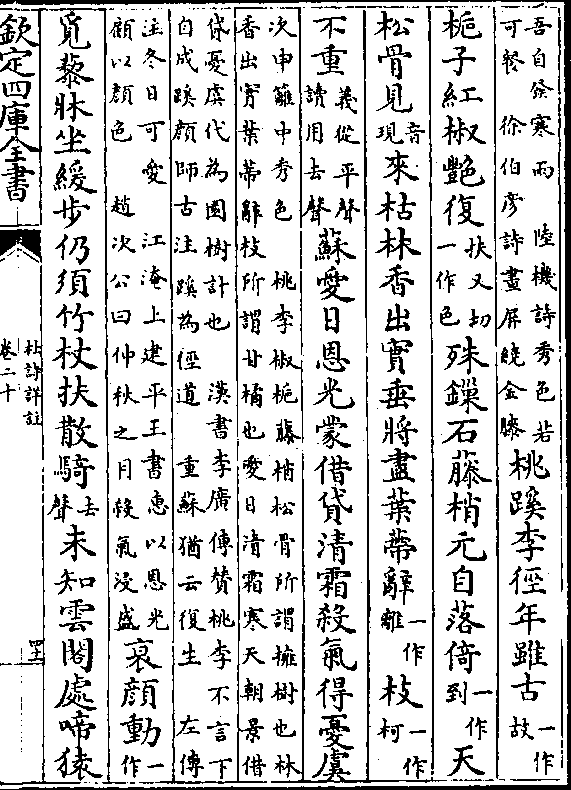 吾自發寒雨　陸機詩秀色若
可餐　徐伯彥詩畫屏繞金縢
桃蹊李徑年雖古一作故
梔子紅椒艷復扶又切一作色殊鏁石藤梢元自落倚一作到天
松骨見音現來枯林香出實垂將盡葉蔕辭一作離枝一作柯
不重義從平聲讀用去聲蘇愛日恩光蒙借貸清霜殺氣得憂虞
次申籬中秀色　桃李椒梔藤梢松骨所謂擁樹也林
香出實葉蒂辭枝所謂甘橘也愛日清霜寒天朝景借
貸憂虞代為園樹計也　漢書李廣傳贊桃李不言下
自成蹊顔師古注蹊為徑道　重蘇猶云復生　左傳
注冬日可愛　江淹上建平王書惠以恩光
顧以顔色　趙次公曰仲秋之月殺氣浸盛
哀顔動一作
覓藜牀坐緩步仍須竹杖扶散騎去聲未知雲閣處啼猿
欽定四庫全書
杜詩詳註
卷二十